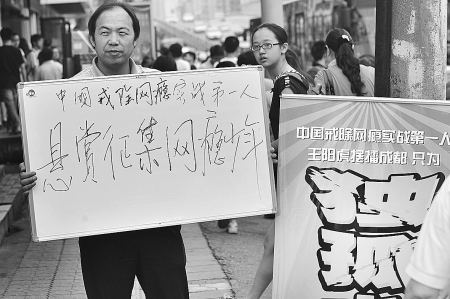 中国戒除网瘾实战第一人
悬赏征集网瘾少年
中国戒除网瘾实战第一人
王阳虎摆擂成都 只为
独孤